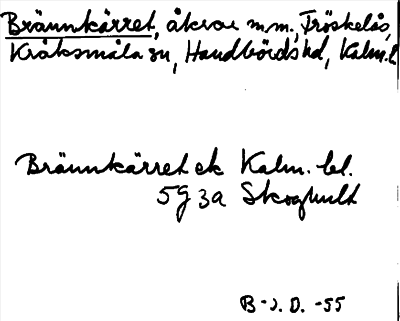 Brännkärret, åkrar m.m., Tröskelås,
Kråksmåla sn, Handbörds hd, Kalm. l.
Brännkärret ek Kalm. bl.
5g 3a Skoghult
B-J. D. -55